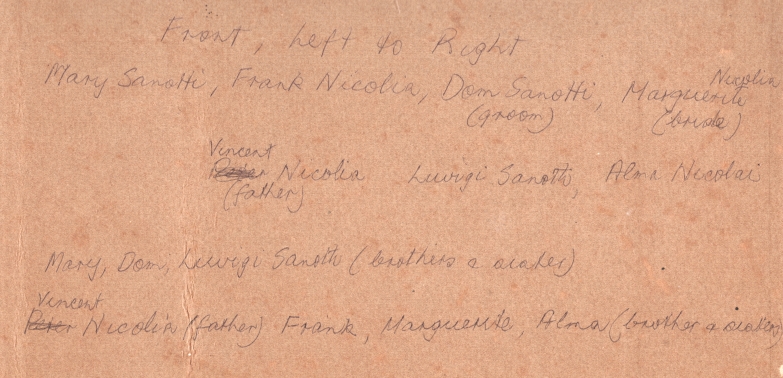 Front, Left to Right
Nicolia
Mary Sanotti, Frank Nicolia, Dom Sanotti, Marguerite
(groom) (bride)
Vincent
Peter Nicolia Luvigi Sanotti, Alma Nicolai
(father)
Mary, Dom, Luvigi Sanotti (brothers & sister)
Vincent
Peter Nicolia (father) Frank, Marguerite, Alma (brother & sister)